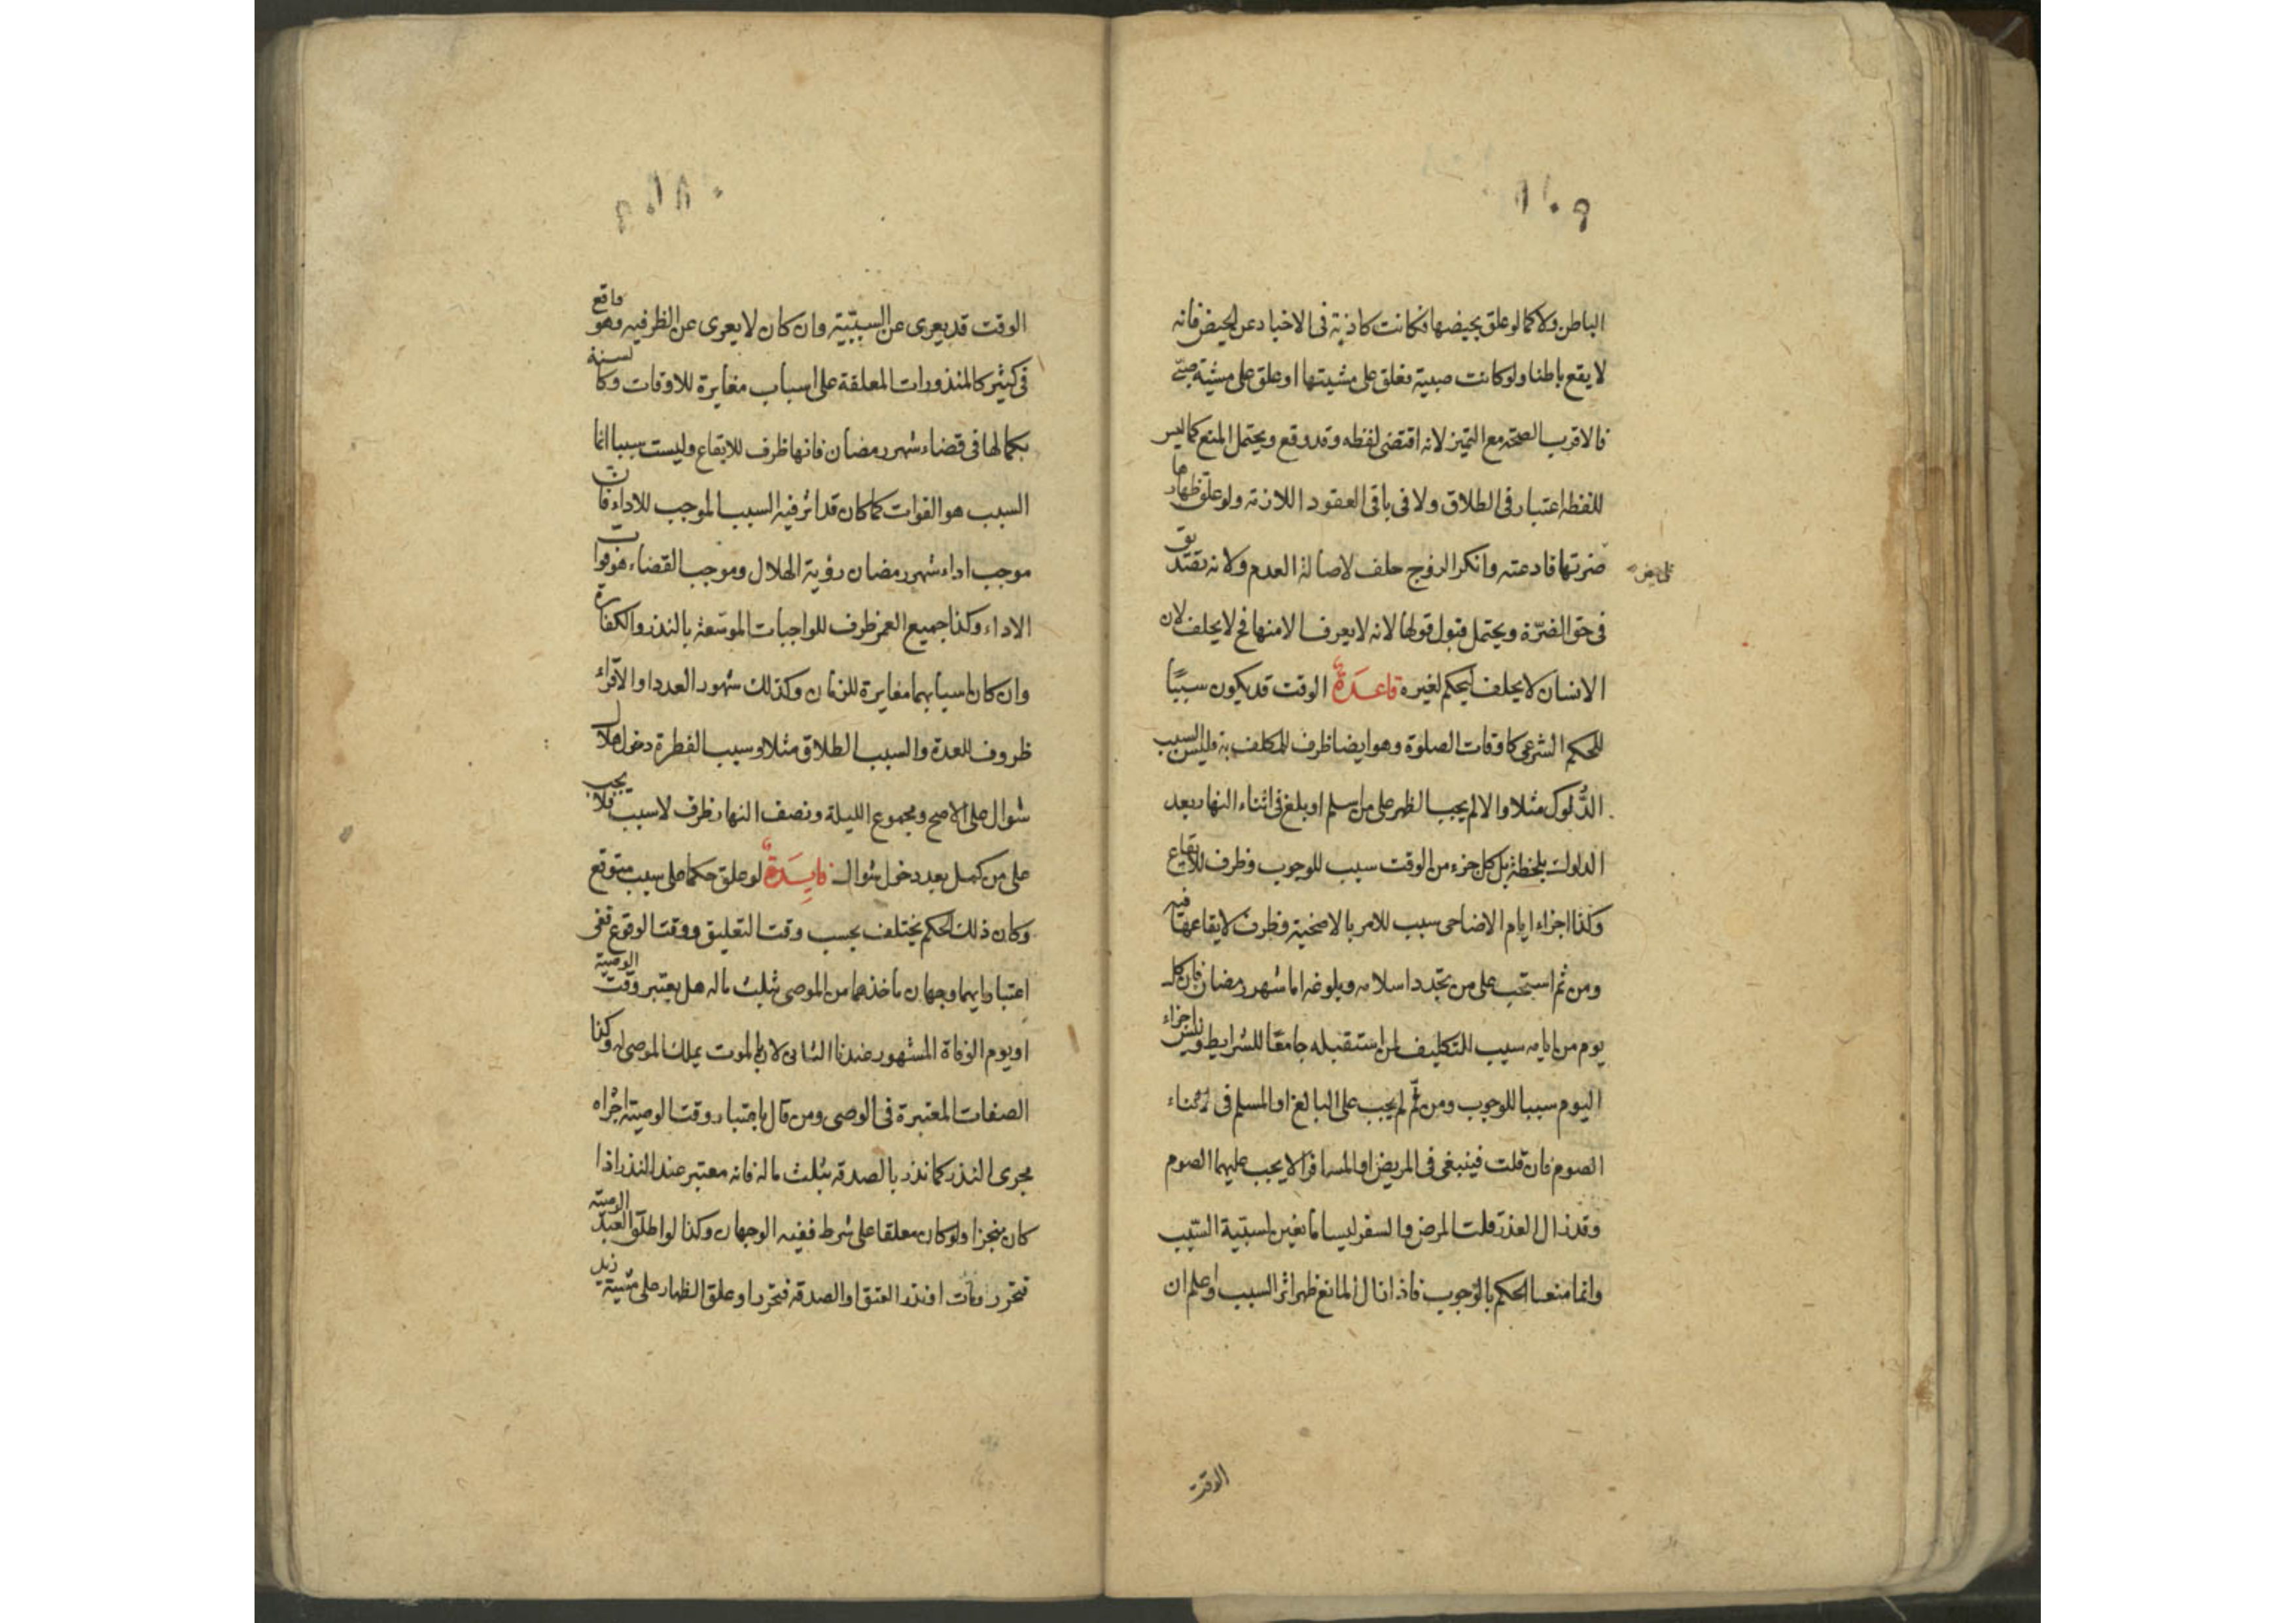 الباطن ولا كما لو علق بحيضها فكانت كاذبة فى الاخبار عن الحيض فانه
لا يقع باطنا ولو كانت صبية فعلق على مشيتها او علق على مشية صبى
فالاقرب الصحة مع التميز لانه اقتضى لفظه وقد وقع ويحتمل المنع كما ليس
للفظه اعتبار فى الطلاق ولا فى باقى العقود اللازمة ولو علق ظهارها
ضرتها فادعته وانكر الزوج حلف لاصالة العدم ولانه تصديق
فى حق الضرّة ويحتمل قبول قولها لانه لا يعرف الا منها فح لا يحلف لان
الانسان لا يحلف ليحكم لغيره قاعدة الوقت قد يكون سببًا
للحكم الشرعى كاوقات الصلوة وهو ايضا ظرف للمكلف به وليس السبب
الدُّلوك مثلا والا لم يجب الظهر على من اسلم او بلغ فى اثناء النهار بعد
الدلوك بلحظة بل كل جزء من الوقت سبب للوجوب وظرف للايقاع
وكذا اجزاء ايام الاضاحى سبب للامر بالاضحية وظرف لايقاعها فيه
ومن ثم استحب على من تجدد اسلامه وبلوغه اما شهر رمضان فان كل
يوم من ايامه سبب التكليف لمن استقبله جامعًا للشرايط وليس اجزاء
اليوم سببا للوجوب ومن ثمّ لم يجب على البالغ او المسلم فى اثناء
الصوم فان قلت فينبغى فى المريض او المسافر الا يجب عليهما الصوم
وقد زال العذر قلت المرض والسفر ليسا مانعين لسببية السبب
وانما منعا الحكم بالوجوب فاذا زال المانع ظهر اثر السبب واعلم ان
الوقت
الوقت قد يعرى عن السببيّة وان كان لا يعرى عن الظرفيه وهو واقع
فى كثير كالمنذورات المعلقة على اسباب مغايرة للاوقات وكالسنة
بكمالها فى قضاء شهر رمضان فانها ظرف للايقاع وليست سببا انما
السبب هو الفوات كما كان قد اثر فيه السبب الموجب للاداء فان
موجب اداء شهر رمضان رؤية الهلال وموجب القضاء هو فوات
الاداء وكذا جميع العمر ظرف للواجبات الموسّعة بالنذر والكفارة
وان كان اسبابهما مغايرة للزمان وكذلك شهور العدد او الاقراء
ظروف للعدة والسبب الطلاق مثلا وسبب الفطرة دخول هلال
شوال على الاصح ومجموع الليلة ونصف النهار ظرف لا سبب فلا يجب
على من كمل بعد دخول شوال فايدة لو علق حكما على سبب متوقع
وكان ذلك الحكم يختلف بحسب وقت التعليق ووقت الوقوع ففى
اعتبار ايهما وجهان ماخذهما من الموصى بثلث ماله هل يعتبر وقت الوصية
او يوم الوفاة المشهور عندنا الثانى لان بالموت يملك الموصى له وكذا
الصفات المعتبرة فى الوصى ومن قال باعتبار وقت الوصية اجراه
مجرى النذر كما نذر بالصدقه بثلث ماله فانه معتبر عند النذر اذا
كان منجزا ولو كان معلقا على شرط ففيه الوجهان وكذا لو اطلق العبد الوصية
فتحرر ومات او نذر العتق او الصدقه فتحرر او علق الظهار على مشية زيد